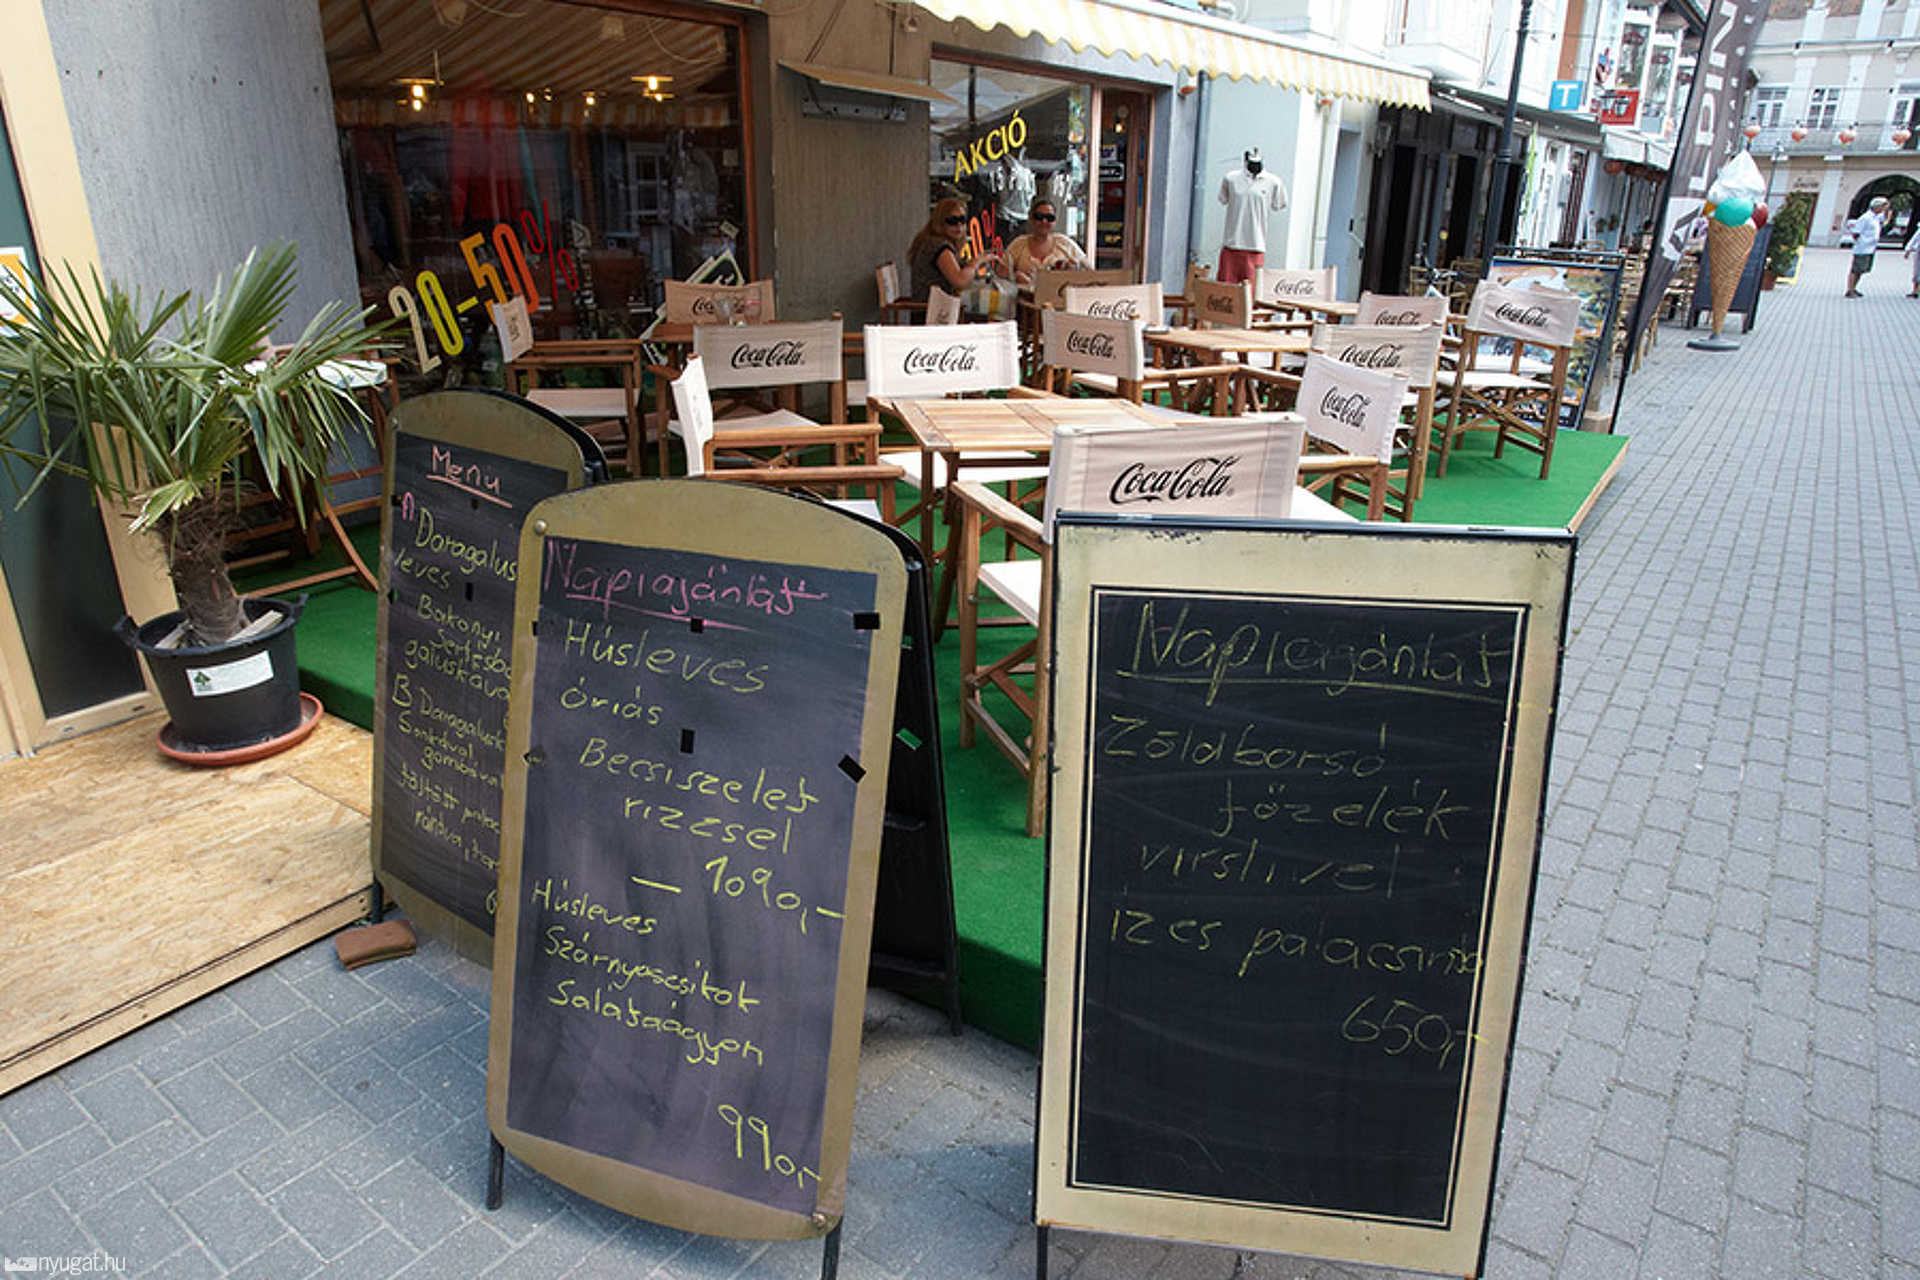 AKCIÓ
20-50%
T
Coca-Cola
Coca-Cola
Coca-Cola
Coca-Cola
Coca-Cola
Coca-Cola
Coca-Cola
Coca-Cola
Coca-Cola
Coca-Cola
Coca-Cola
Menü
A Daragalus
leves
Bakonyi
Sertésbo
galuskáva
B Daragalusk
Sonkával
gombával
töltött palac
rántva,
Napiajánlat
Húsleves
óriás
Becsiszelet
rizzsel
— 1090,-
Húsleves
Szárnyascsíkok
Salátaágyon
990,-
Napiajánlat
Zöldborsó
főzelék
virslivel
ízes palacsinta
650,-
nyugat.hu